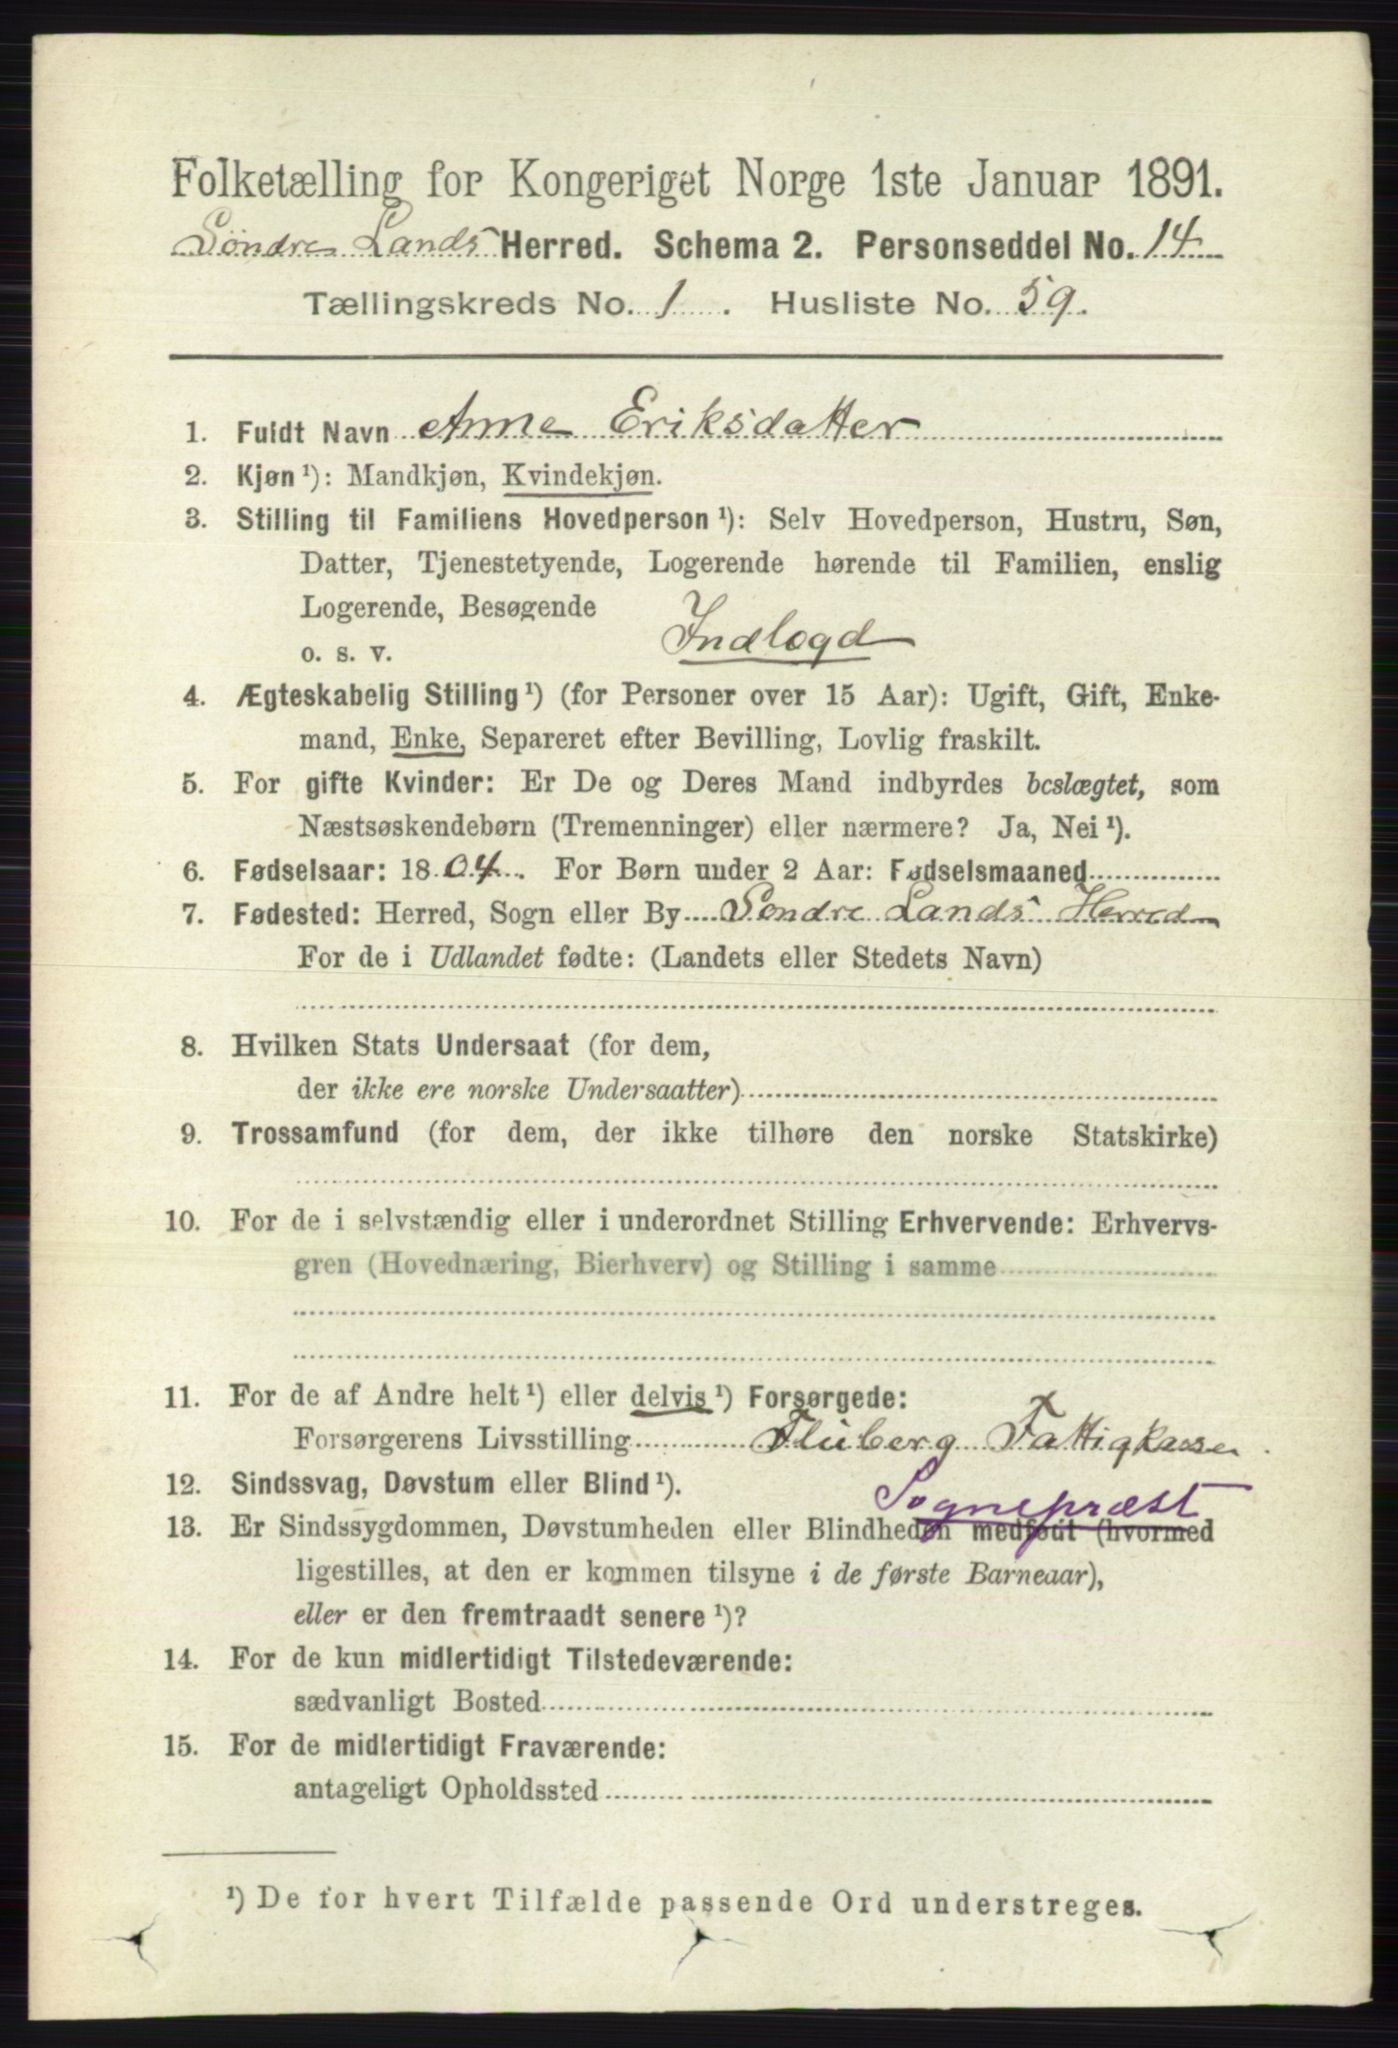 Folketælling for Kongeriget Norge 1ste Januar 1891.
Søndre Lands Herred. Schema 2. Personseddel No. 14
Tællingskreds No. 1. Husliste No. 59.
1. Fuldt Navn Anne Eriksdatter
2. Kjøn ¹): Mandkjøn, Kvindekjøn.
3. Stilling til Familiens Hovedperson ¹): Selv Hovedperson, Hustru, Søn,
Datter, Tjenestetyende, Logerende hørende til Familien, enslig
Logerende, Besøgende
o. s. v. Indlogd
4. Ægteskabelig Stilling ¹) (for Personer over 15 Aar): Ugift, Gift, Enke-
mand, Enke, Separeret efter Bevilling, Lovlig fraskilt.
5. For gifte Kvinder: Er De og Deres Mand indbyrdes beslægtet, som
Næstsøskendebørn (Tremenninger) eller nærmere? Ja, Nei ¹).
6. Fødselsaar: 1804. For Børn under 2 Aar: Fødselsmaaned
7. Fødested: Herred, Sogn eller By Søndre Lands Herred
For de i Udlandet fødte: (Landets eller Stedets Navn)
8. Hvilken Stats Undersaat (for dem,
der ikke ere norske Undersaatter)
9. Trossamfund (for dem, der ikke tilhøre den norske Statskirke)
10. For de i selvstændig eller i underordnet Stilling Erhvervende: Erhvervs-
gren (Hovednæring, Bierhverv) og Stilling i samme
11. For de af Andre helt ¹) eller delvis ¹) Forsørgede:
Forsørgerens Livsstilling Fluberg Fattigkasse
12. Sindssvag, Døvstum eller Blind ¹).
Sognepræst
13. Er Sindssygdommen, Døvstumheden eller Blindheden medfødt (hvormed
ligestilles, at den er kommen tilsyne i de første Barneaar),
eller er den fremtraadt senere ¹)?
14. For de kun midlertidigt Tilstedeværende:
sædvanligt Bosted
15. For de midlertidigt Fraværende:
antageligt Opholdssted
¹) De for hvert Tilfælde passende Ord understreges.